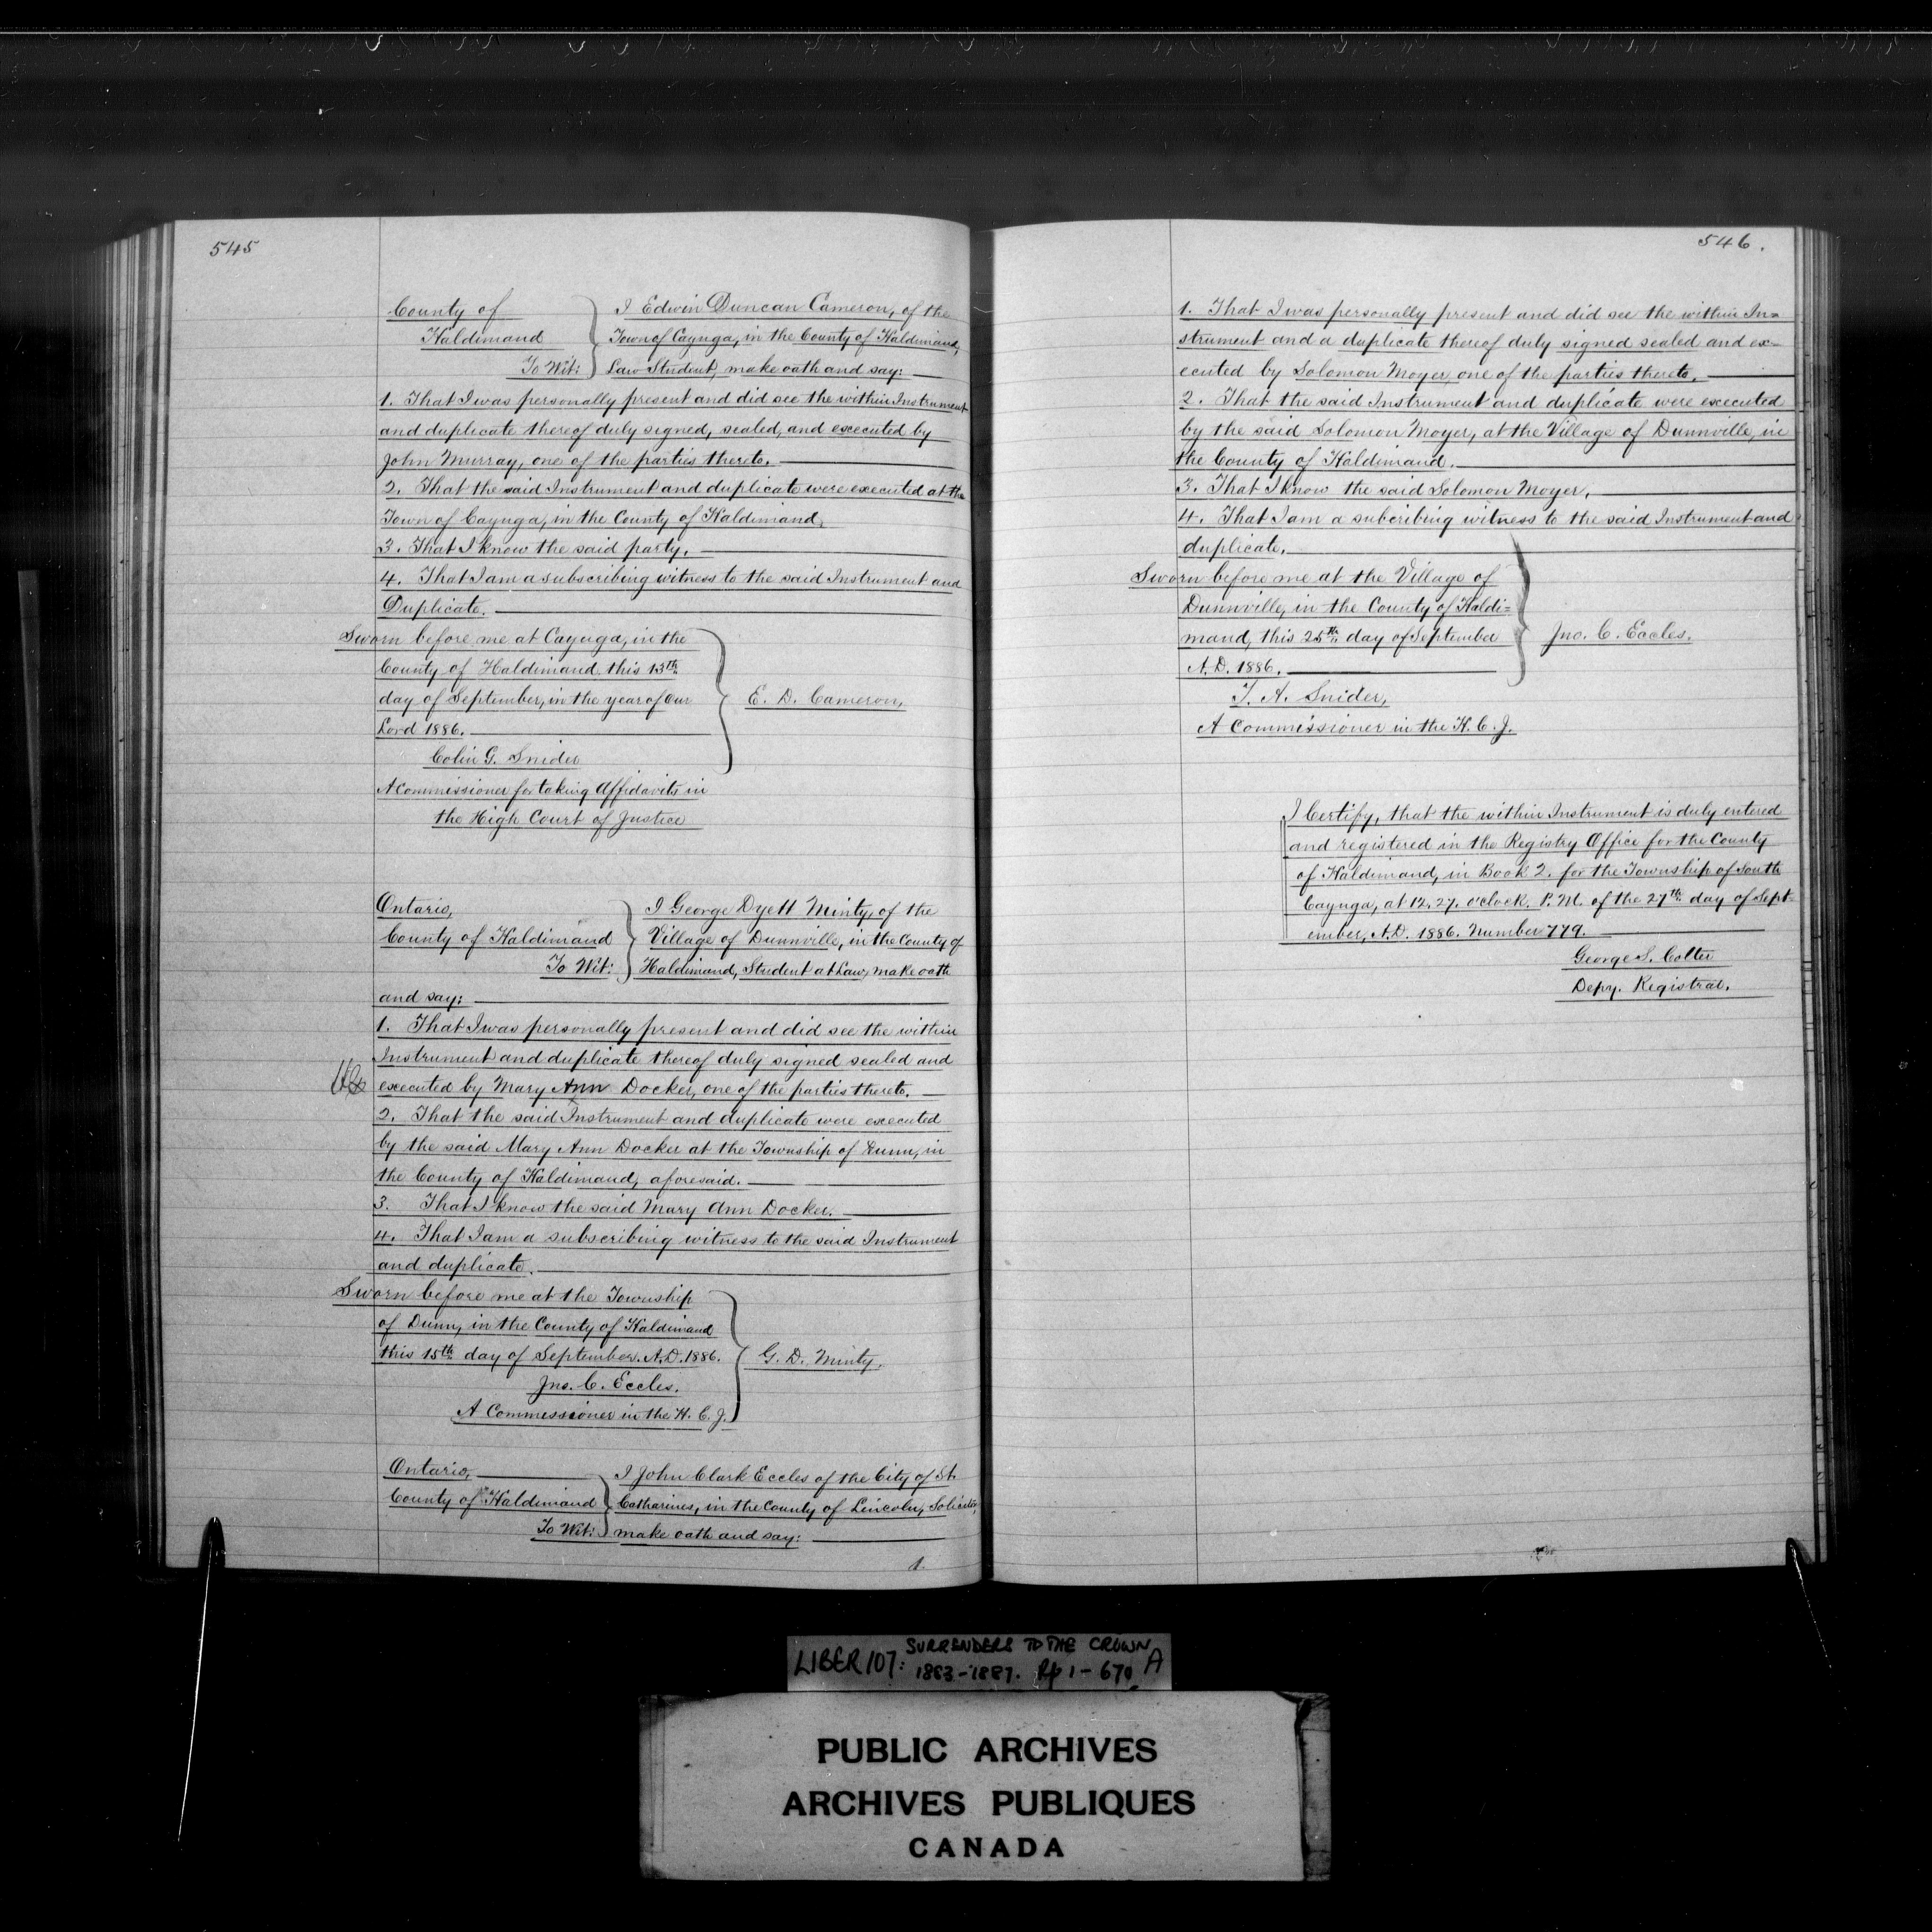 545
County of
Haldimand
To Wit:
I Edwin Duncan Cameron, of the
Town of Cayuga, in the County of Haldimand,
Law Student, make oath and say:
1. That I was personally present and did see the within Instrument
and duplicate thereof duly signed, sealed, and executed by
John Murray, one of the parties thereto.
2. That the said Instrument and duplicate were executed at the
Town of Cayuga, in the County of Haldimand,
3. That I know the said party.
4. That I am a subscribing witness to the said Instrument and
Duplicate.
Sworn before me at Cayuga, in the
County of Haldimand this 13th
day of September, in the year of Our
Lord 1886.
E. D. Cameron,
Colin G. Snider
A Commissioner for taking Affidavits in
the High Court of Justice
Ontario,
County of Haldimand
To Wit:
I George Dyett Minty, of the
Village of Dunnville, in the County of
Haldimand, Student at Law, make oath
and say:
1. That I was personally present and did see the within
Instrument and duplicate thereof duly signed sealed and
executed by Mary Ann Docker, one of the parties thereto.
2. That the said Instrument and duplicate were executed
by the said Mary Ann Docker at the Township of Dunn, in
the County of Haldimand, aforesaid.
3. That I know the said Mary Ann Docker.
4. That I am a subscribing witness to the said Instrument
and duplicate.
Sworn before me at the Township
of Dunn, in the County of Haldimand
this 15th day of September. A.D. 1886.
G. D. Minty.
Jno. C. Eccles.
A Commissioner in the H. C. J.
Ontario,
County of Haldimand
To Wit:
I John Clark Eccles of the City of St.
Catharines, in the County of Lincoln, Solicitor,
make oath and say:
1.
546.
1. That I was personally present and did see the within In=
strument and a duplicate thereof duly signed sealed and ex-
ecuted by Solomon Moyer, one of the parties thereto.
2. That the said Instrument and duplicate were executed
by the said Solomon Moyer, at the Village of Dunnville, in
the County of Haldimand.
3. That I know the said Solomon Moyer.
4. That I am a subcribing witness to the said Instrument and
duplicate.
Sworn before me at the Village of
Dunnville, in the County of Haldi=
mand, this 25th day of September
A.D. 1886.
Jno. C. Eccles.
T. A. Snider,
A Commissioner in the H. C. J.
I Certify, that the within Instrument is duly entered
and registered in the Registry Office for the County
of Haldimand, in Book 2. for the Township of South
Cayuga, at 12.27. o'clock. P.M. of the 27th day of Sept-
ember, A.D. 1886. Number 779.
George S. Colter
Depy. Registrar.
LIBER 107: SURRENDERS TO THE CROWN
1883-1887. Pp 1-670 A
PUBLIC ARCHIVES
ARCHIVES PUBLIQUES
CANADA